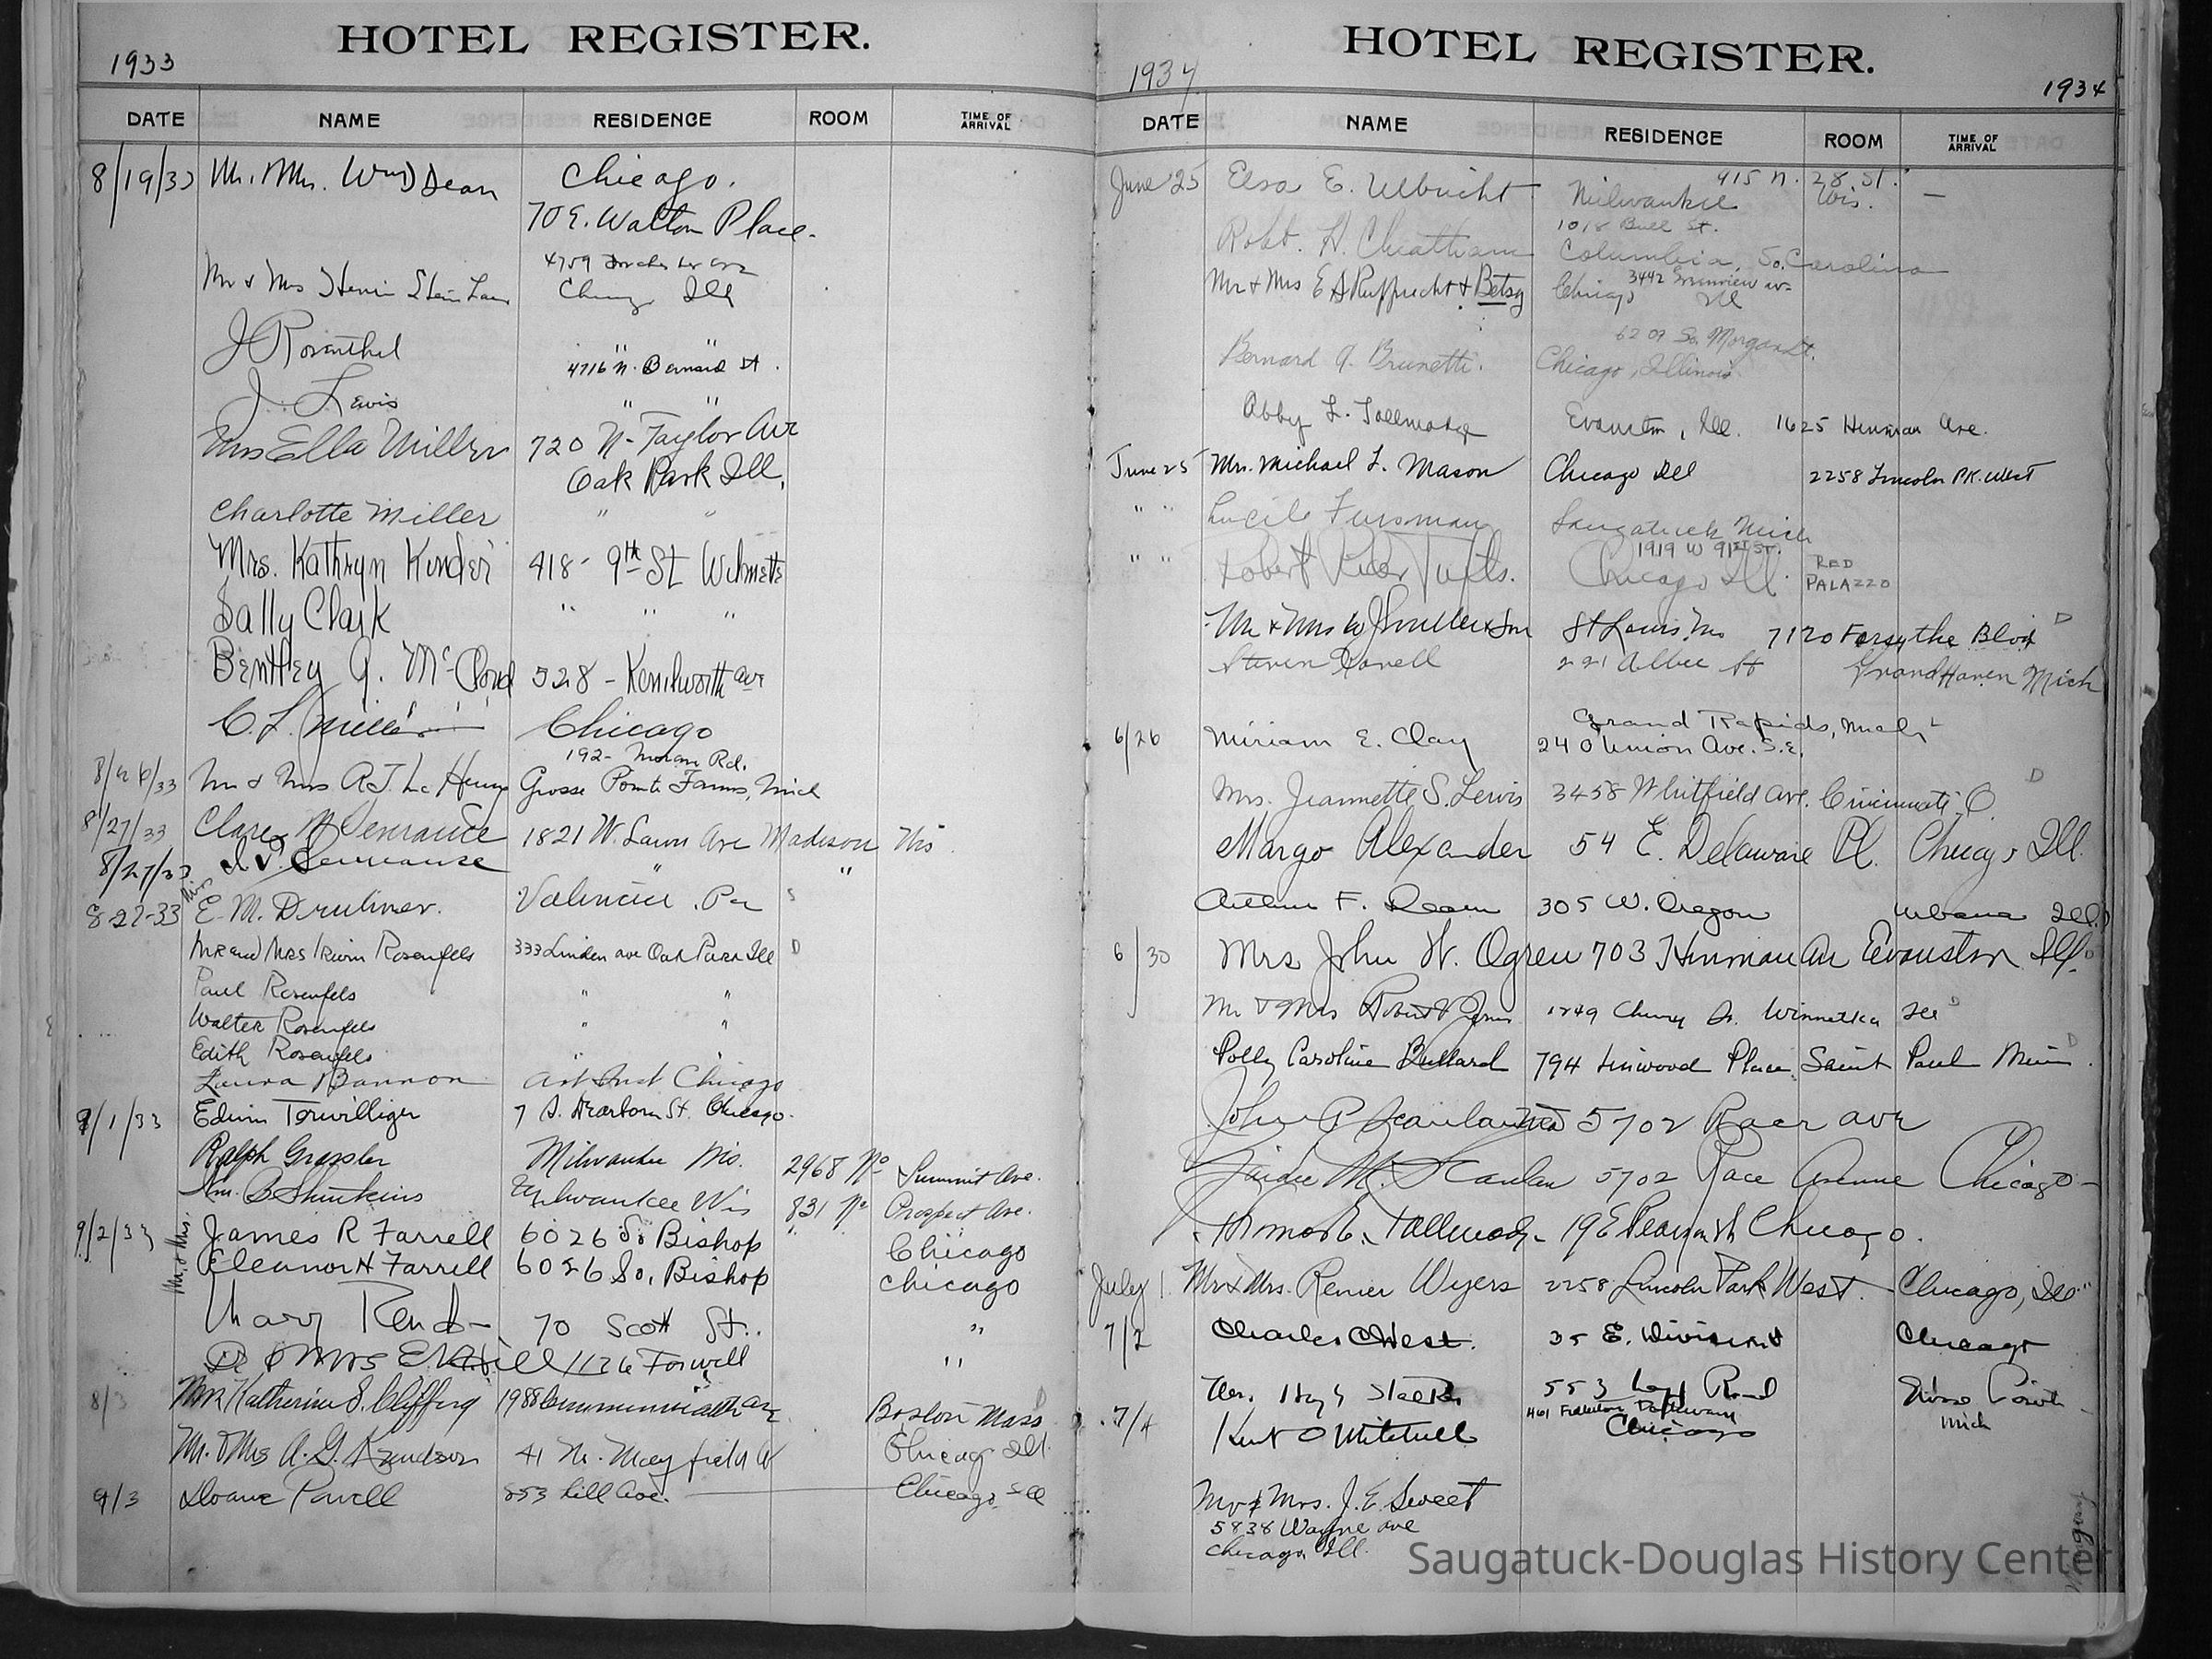 HOTEL REGISTER.
1933
DATE NAME RESIDENCE ROOM TIME OF ARRIVAL
8/19/33 Mr. Mrs. Wm D Dean Chicago.
70 E. Walton Place.
4759
Mr & Mrs Chicago Ill
J Rosenthal " "
4716 N. Bernard St.
J. Lewis " "
Mrs Ella Miller 720 N- Taylor Ave
Oak Park Ill.
Charlotte Miller " "
Mrs. Kathryn Kinder 418- 9th St Wilmette
Sally Clark " " "
Bentley G. McCloud 528 - Kenilworth ave
C. L. Miller Chicago
192- Moran Rd.
8/26/33 Mr & Mrs A.J. Mc Henry Grosse Pointe Farms, Mich
8/27/33 1821 W. Lawn Ave Madison Wis.
8/27/33 " "
8-27-33 E. M. Valencia, Pa S
Mr and Mrs Irwin Rosenfels 333 Linden ave Oak Park Ill D
Paul Rosenfels " "
Walter Rosenfels " "
Edith Rosenfels " "
Laura Bannon Art Inst Chicago
9/1/33 Edwin Terwilliger 7 S. Dearborn St. Chicago.
Ralph Milwaukee Wis. 2968 No Summit Ave.
Wm. B Milwaukee Wis 831 No Prospect Ave.
9/2/33 Mr. & Mrs. James R Farrell 6026 So Bishop Chicago
Eleanor H Farrell 6026 So. Bishop Chicago
Mary 70 Scott St. "
Dr & Mrs 1126 "
8/3 Katherine S. 1988 Commonwealth Ave Boston Mass D
Mr. & Mrs A. G. Knudson 41 N. Mayfield Av Chicago Ill.
9/3 Sloane Powell 853 Chicago Ill
HOTEL REGISTER.
1934 1934
DATE NAME RESIDENCE ROOM TIME OF ARRIVAL
415 N. 28. St.
June 25 Elsa E. Ulbricht Milwaukee Wis. —
1018 Bull St.
Robt. H. Columbia, So. Carolina
3442 Greenview av-
Mr & Mrs E A Rupprecht & Betsy Chicago Ill
6207 So. Morgan St.
Bernard A. Brunetti. Chicago, Illinois
Abby L. Tallmadge Evanston, Ill. 1625 Hinman Ave.
June 25 Mrs. Michael L. Mason Chicago Ill 2258 Lincoln PK. West
" " Saugatuck Mich
1919 W 91st St.
" " Robert Tufts. Chicago Ill. RED PALAZZO
Mr & Mrs W J Miller & Son St Louis, Mo 7120 Forsythe Blvd D
Steven 221 Albee St Grand Haven Mich
Grand Rapids, Mich L
6/26 Miriam E. Clay 240 Union Ave. S.E.
Mrs. Jeannette S. Lewis 3458 Whitfield Ave. Cincinnati O. D
Margo Alexander 54 E. Delaware Pl. Chicago Ill.
Arthur F. Deam 305 W. Oregon Urbana Ill.
6/30 Mrs John W. Ogren 703 Hinman Av Evanston Ill.
Mr & Mrs Robert 1249 Cherry St. Winnetka Ill D
Polly Caroline Bullard 794 Linwood Place Saint Paul Minn. D
John P Scanlan 5702 Race ave
M. Scanlan 5702 Race Avenue Chicago
Thomas E. Tallmadge 19 E Pearson St Chicago.
July 1 Mr & Mrs. Renier Wyers 2258 Lincoln Park West. Chicago, Ill
7/2 Charles C West. 35 E. Division St Chicago
553 Road Mich
461 Fullerton Parkway
7/4 Kent O Mitchell Chicago
Mr & Mrs. J. E. Sweet
5838 Wayne ave
Chicago Ill.
Saugatuck-Douglas History Center